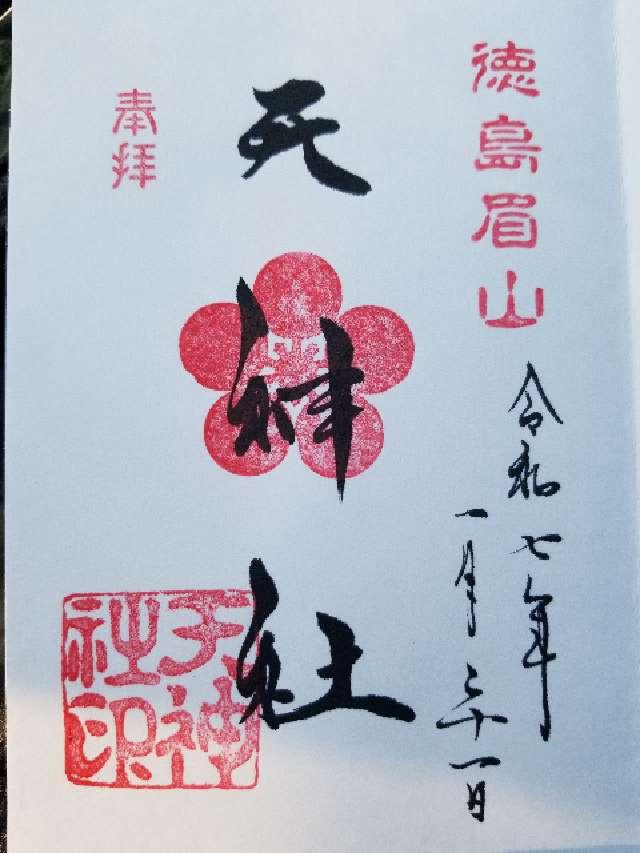 徳島眉山
令和七年
一月三十一日
天神社
奉拝
天神
社印